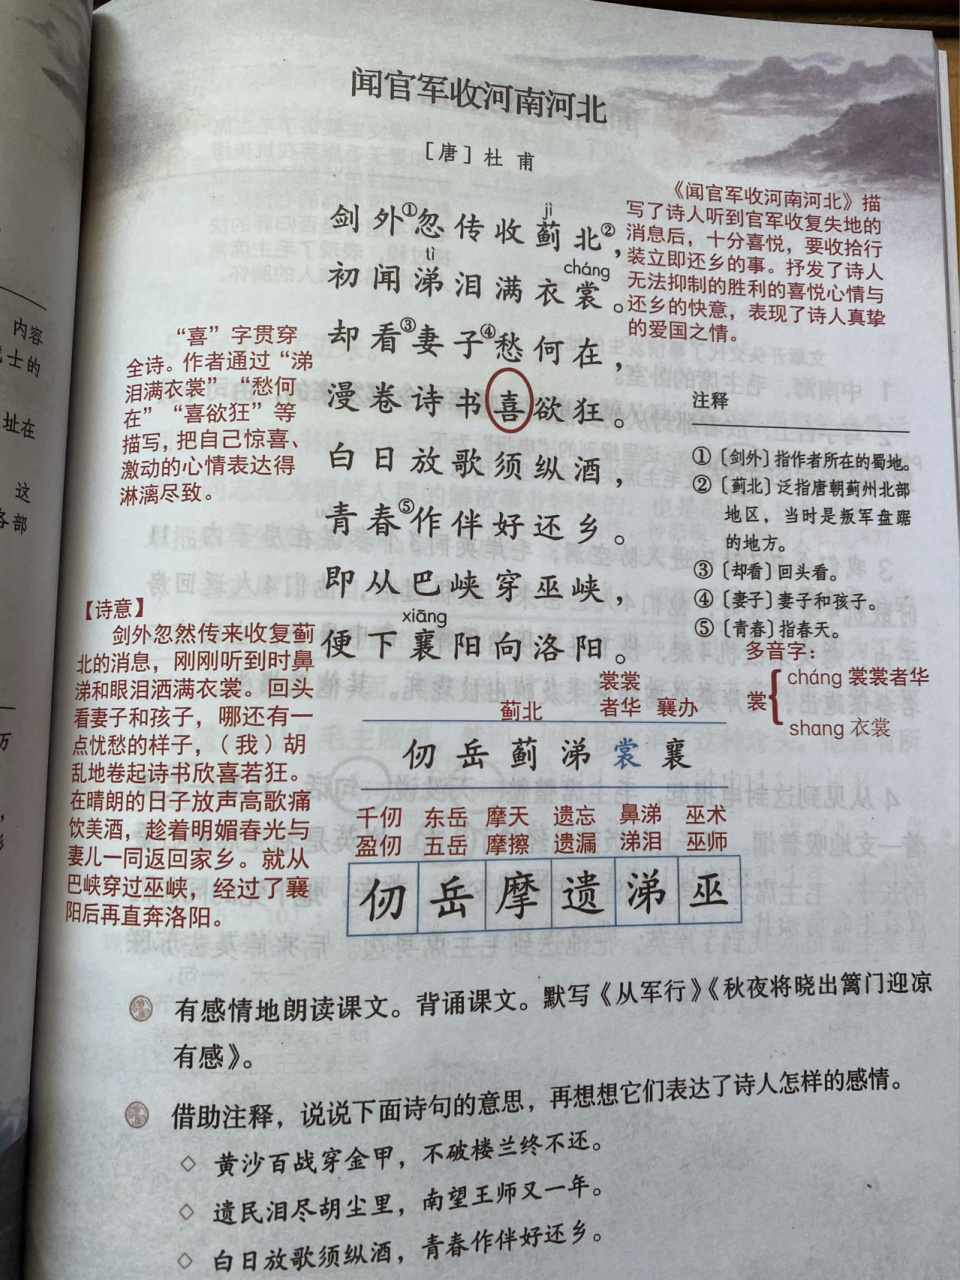 闻官军收河南河北
［唐］杜 甫
剑外①忽传收蓟北②，
jì
初闻涕泪满衣裳。
tì
cháng
却看③妻子④愁何在，
漫卷诗书喜欲狂。
白日放歌须纵酒，
青春⑤作伴好还乡。
即从巴峡穿巫峡，
便下襄阳向洛阳。
xiāng
《闻官军收河南河北》描
写了诗人听到官军收复失地的
消息后，十分喜悦，要收拾行
装立即还乡的事。抒发了诗人
无法抑制的胜利的喜悦心情与
还乡的快意，表现了诗人真挚
的爱国之情。
“喜”字贯穿
全诗。作者通过“涕
泪满衣裳”“愁何
在”“喜欲狂”等
描写，把自己惊喜、
激动的心情表达得
淋漓尽致。
注释
①〔剑外〕指作者所在的蜀地。
②〔蓟北〕泛指唐朝蓟州北部
地区，当时是叛军盘踞
的地方。
③〔却看〕回头看。
④〔妻子〕妻子和孩子。
⑤〔青春〕指春天。
多音字：
裳
cháng 裳裳者华
shang 衣裳
【诗意】
剑外忽然传来收复蓟
北的消息，刚刚听到时鼻
涕和眼泪洒满衣裳。回头
看妻子和孩子，哪还有一
点忧愁的样子，（我）胡
乱地卷起诗书欣喜若狂。
在晴朗的日子放声高歌痛
饮美酒，趁着明媚春光与
妻儿一同返回家乡。就从
巴峡穿过巫峡，经过了襄
阳后再直奔洛阳。
蓟北 裳裳者华 襄办
仞 岳 蓟 涕 裳 襄
千仞 东岳 摩天 遗忘 鼻涕 巫术
盈仞 五岳 摩擦 遗漏 涕泪 巫师
仞 岳 摩 遗 涕 巫
有感情地朗读课文。背诵课文。默写《从军行》《秋夜将晓出篱门迎凉
有感》。
借助注释，说说下面诗句的意思，再想想它们表达了诗人怎样的感情。
◇ 黄沙百战穿金甲，不破楼兰终不还。
◇ 遗民泪尽胡尘里，南望王师又一年。
◇ 白日放歌须纵酒，青春作伴好还乡。
内容
士的
址在
这
各部
万